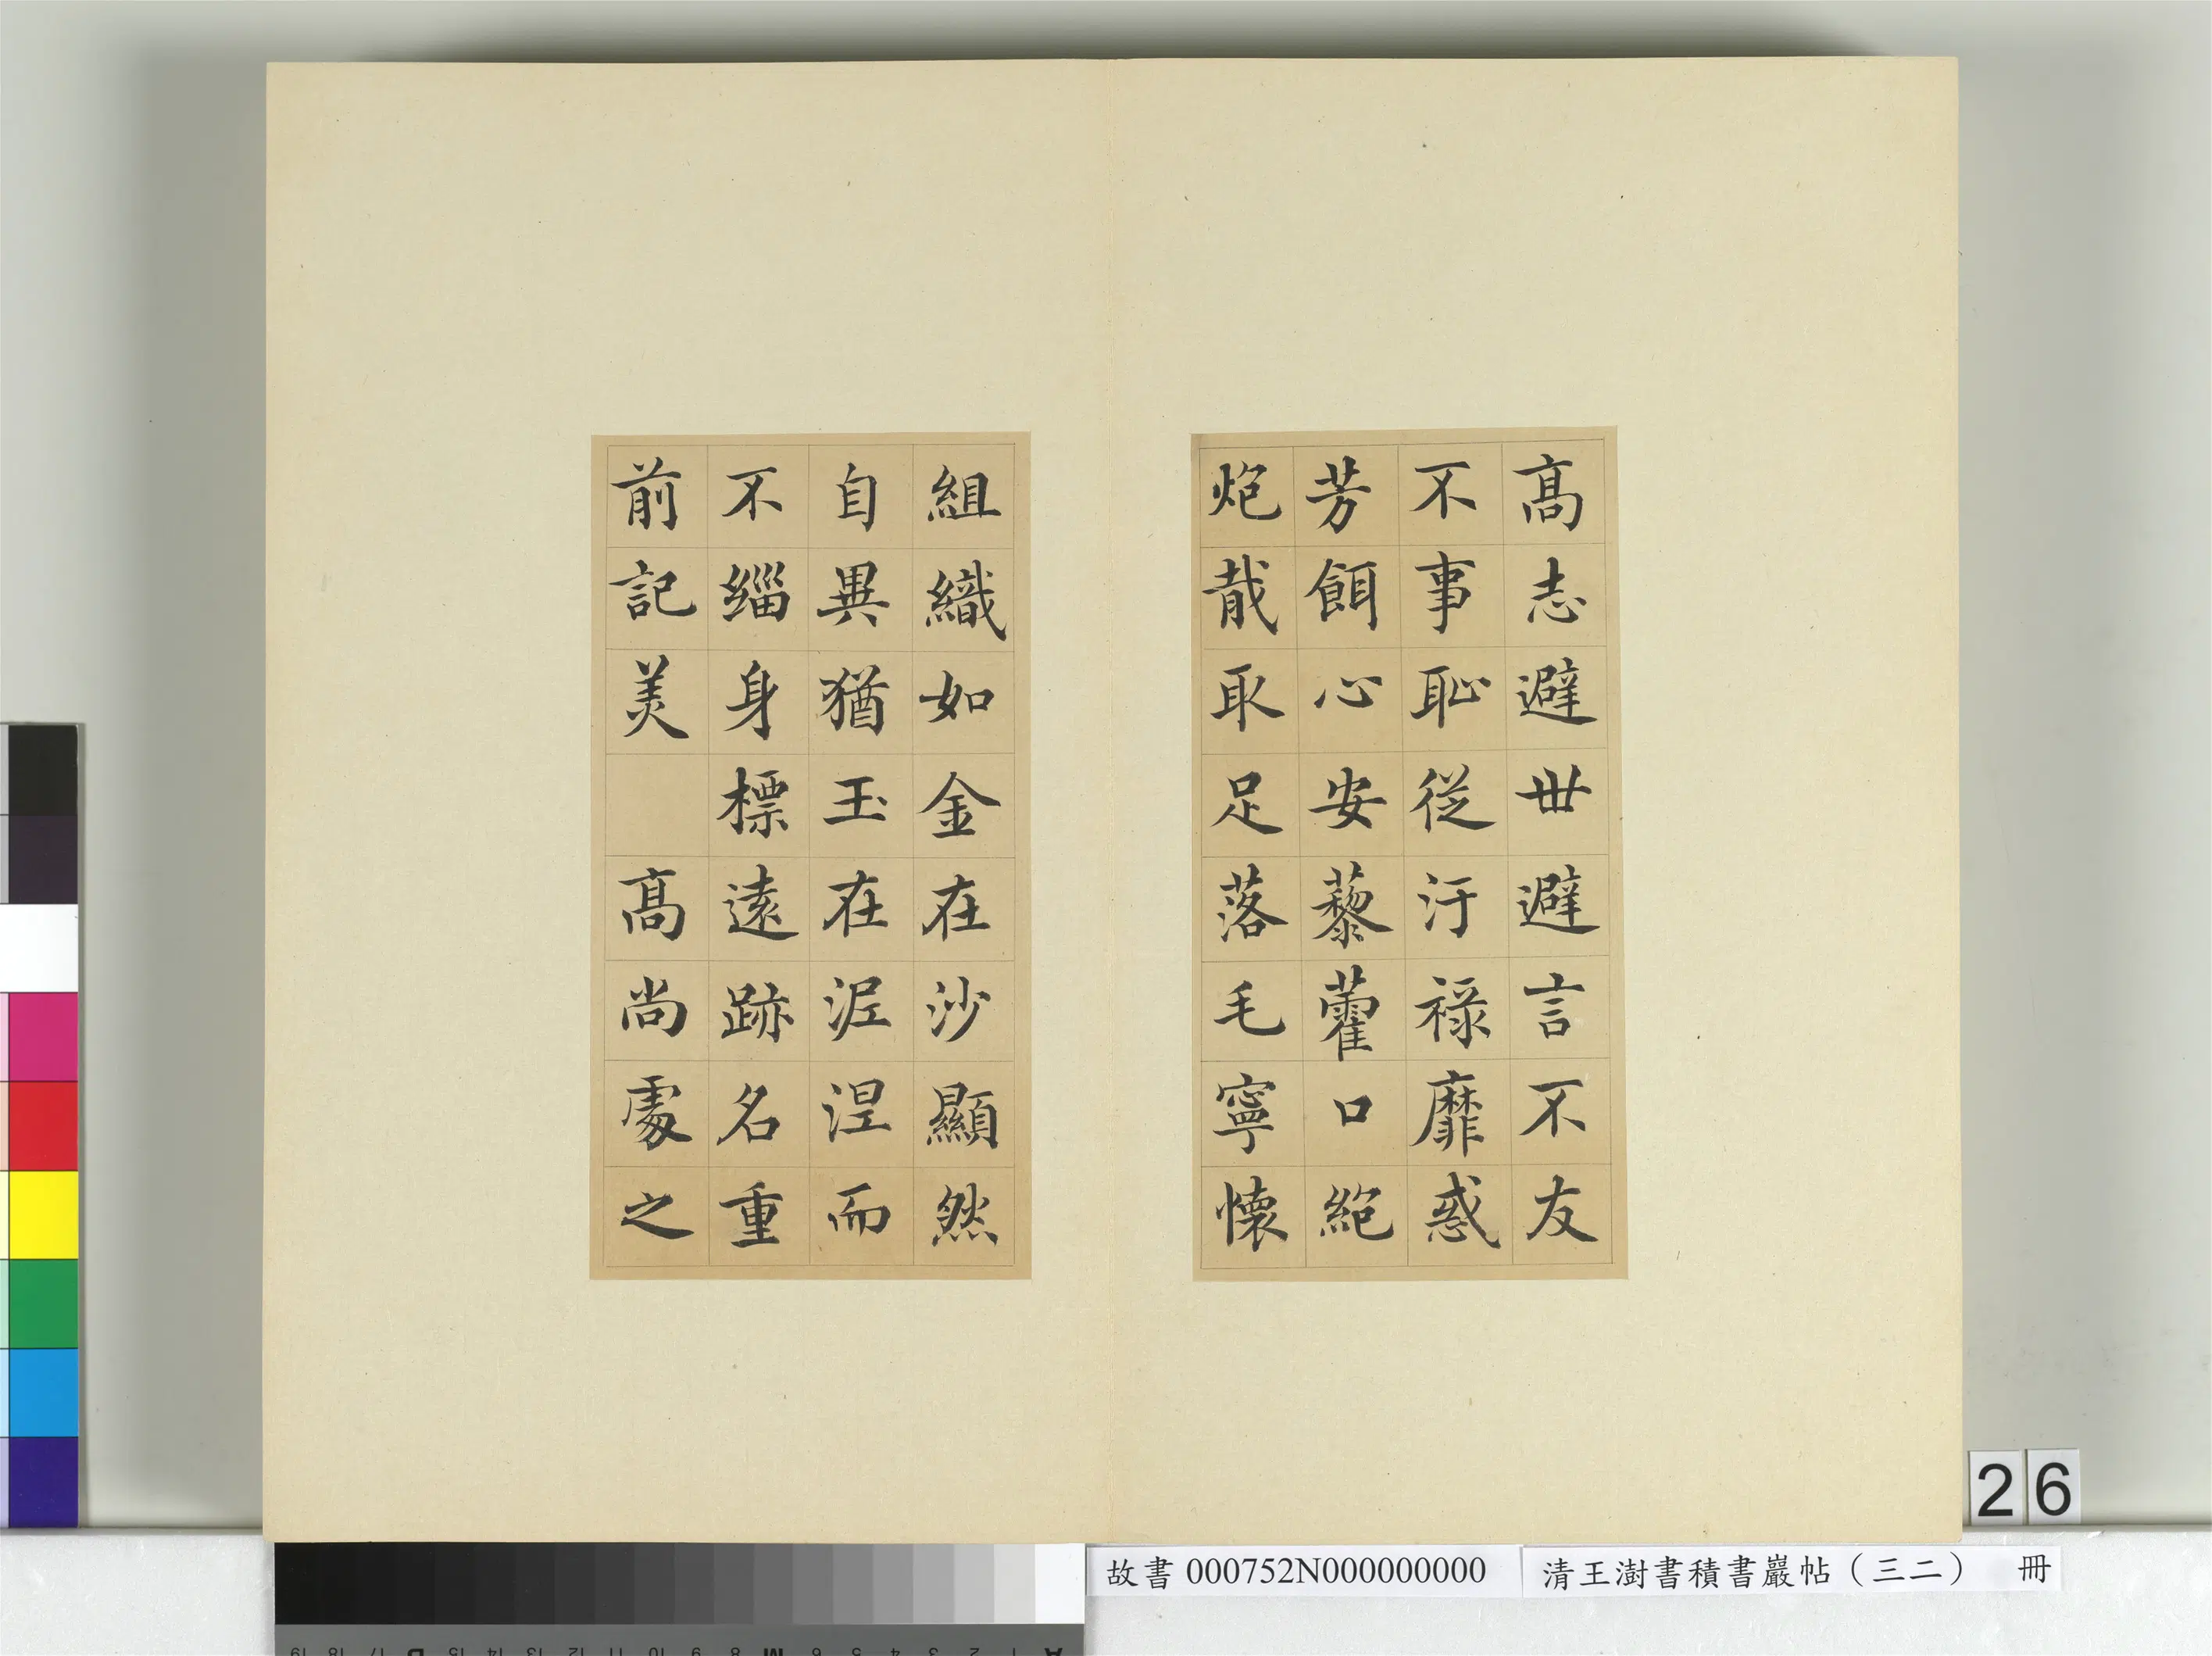 高志避世避言不友
不事恥從汙祿靡惑
芳餌心安藜藿口絕
炮胾取足落毛寧懷
組織如金在沙顯然
自異猶玉在泥涅而
不緇身標遠跡名重
前記美　高尚處之
26
故書 000752N000000000
清王澍書積書巖帖（三二）　冊